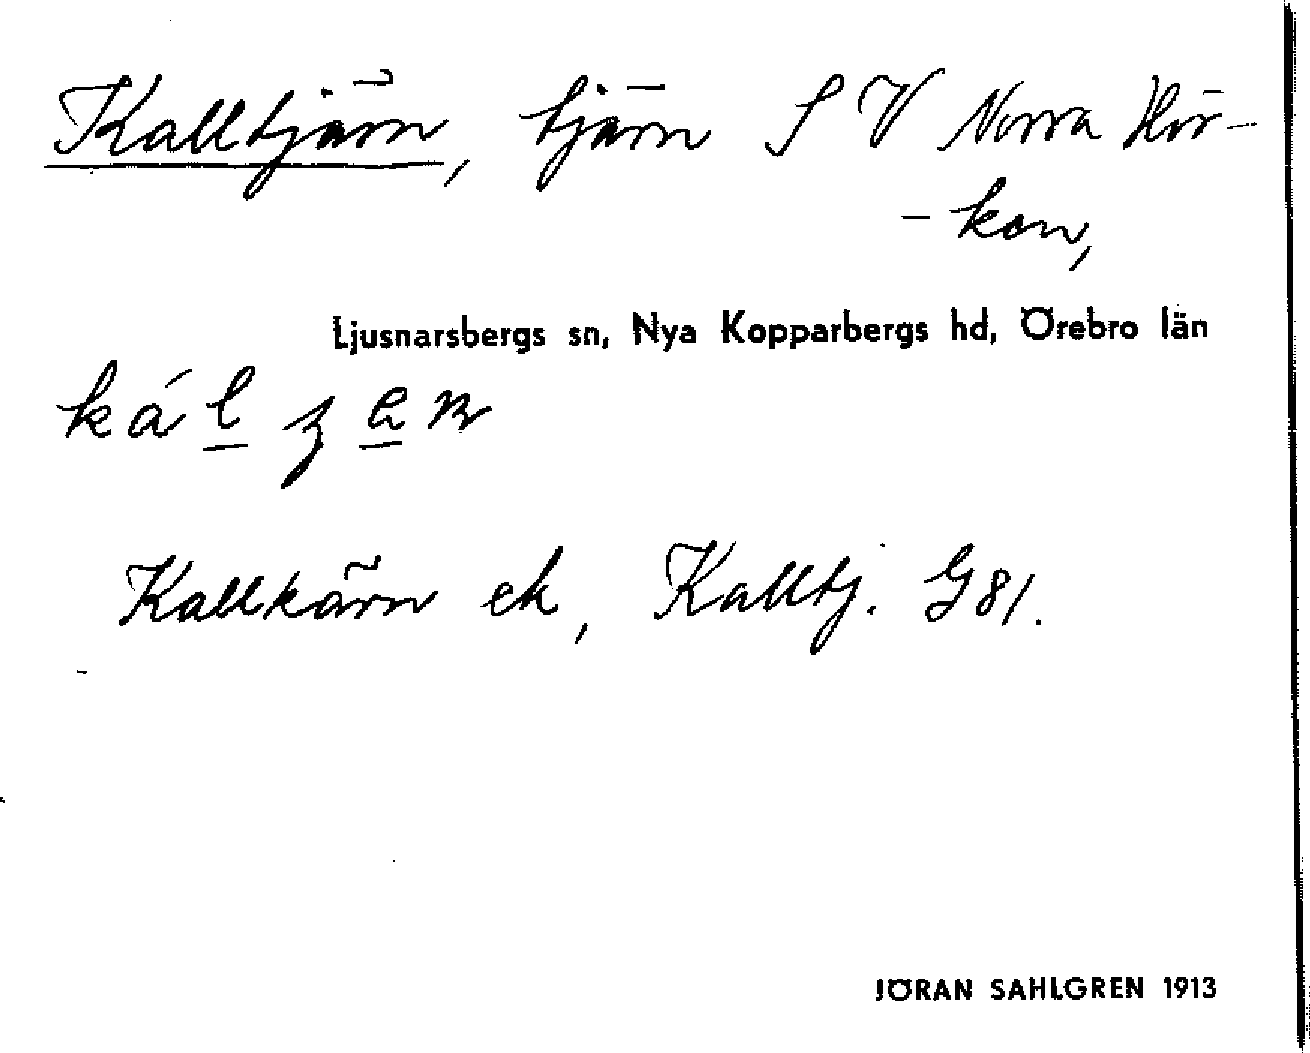 Kalltjärn, tjärn S V Norra Hör-
- ken,
Ljusnarsbergs sn, Nya Kopparbergs hd, Örebro län
Kallkärn ek, Kalltj. G 81.
JÖRAN SAHLGREN 1913